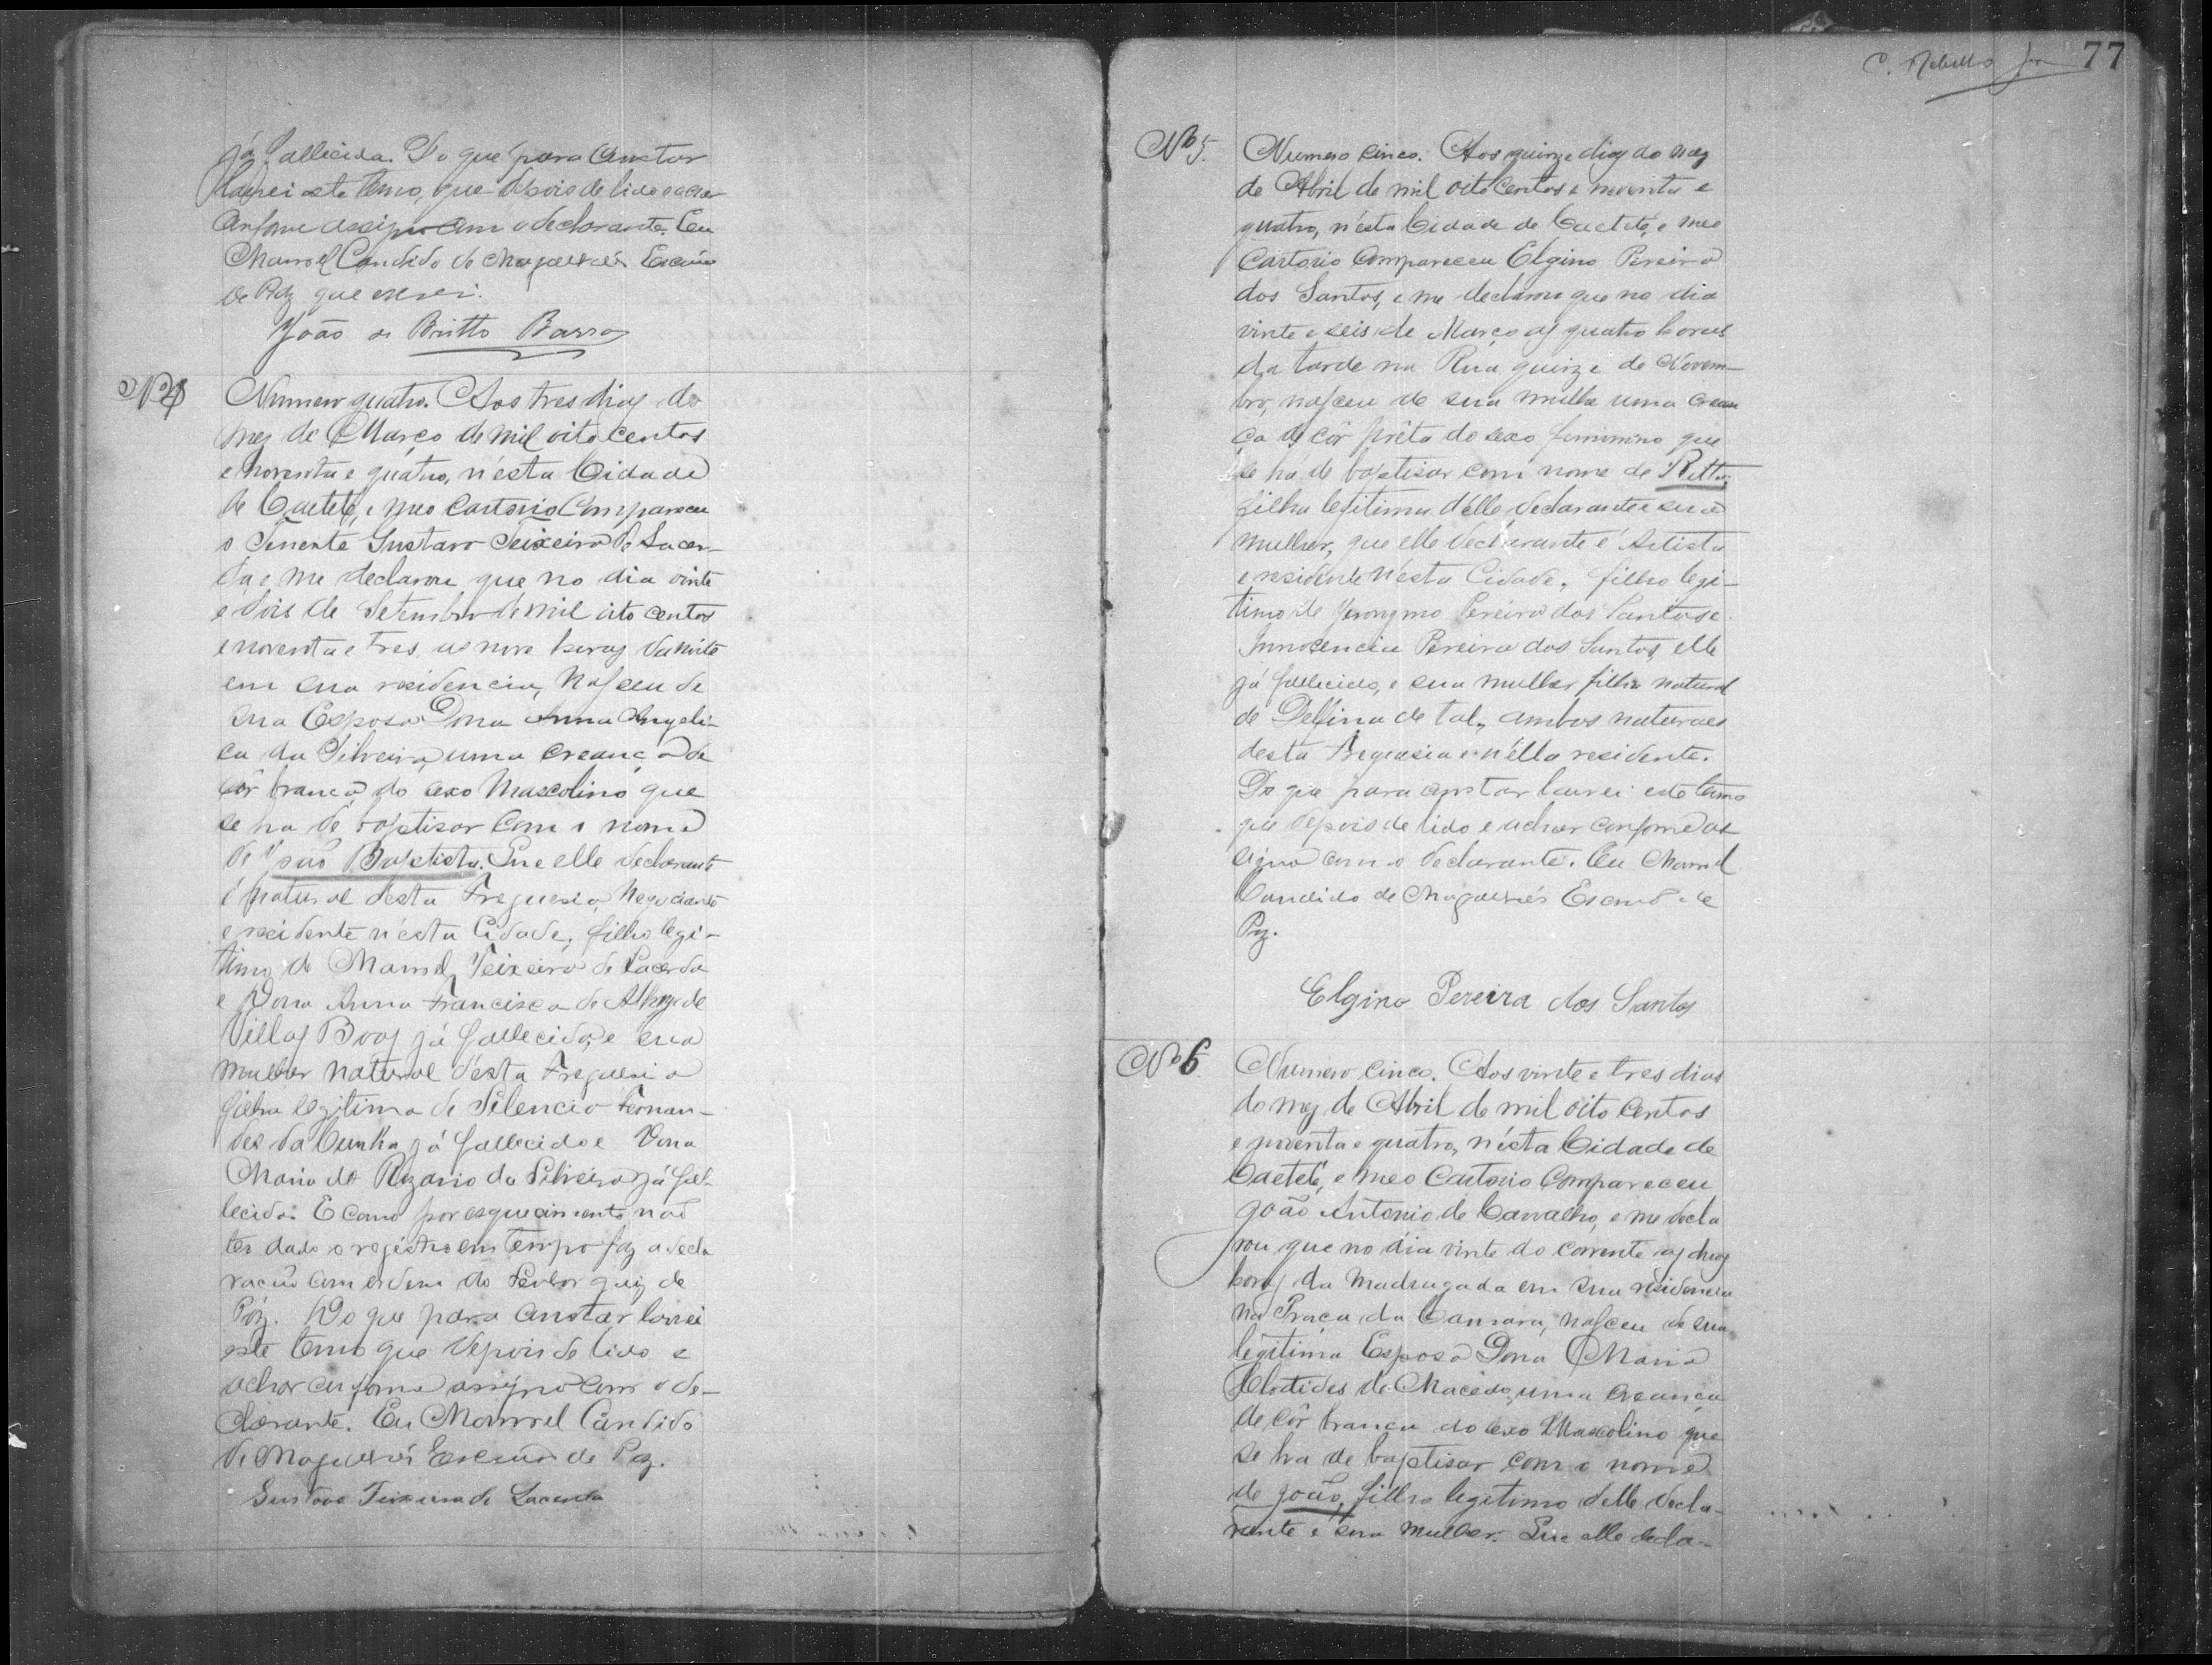 já fallecida. Do que para Constar
lavrei este termo, que depois de lido e achar
Conforme assigno com o declarante. Eu
Manoel Candido de Magalhães Escrivão
de Paz que escrevi.
João de Britto Barros
Nº 4
Numero quatro. Aos tres dias do
mez de Março de mil oito centos
e noventa e quatro, n'esta Cidade
de Caeteté, e meo Cartorio Compareceu
o Tenente Gustavo Teixeira de Lacer-
da e me declarou que no dia vinte
e dois de Setembro de mil oito centos
e noventa e tres as nove horas da noite
em sua residencia, nasceu de
sua Esposa Dona Anna Angeli-
ca da Silveira, uma creança de
côr branca do sexo Mascolino que
se ha de baptisar com o nome
de João Baptista. Que elle declarante
é natural desta Freguesia, Negociante
e residente n'esta Cidade, filho legi-
timo de Manoel Teixeira de Lacerda
e Dona Anna Francisca de
Villas Boas já fallecida, e sua
mulher natural d'esta Freguesia
filha legitima de Silencio Fernan-
des da Cunha já fallecido e Dona
Maria do Rozario da Silveira já fal-
lecida. E como por esquecimento não
ter dado o registro em tempo faz a decla
ração com ordem do Senhor Juiz de
Paz. Do que para constar lavrei
este termo que depois de lido e
achar conforme assigno com o de-
clarante. Eu Manoel Candido
de Magalhães Escrivão de Paz.
Gustavo Teixeira de Lacerda
77
Nº 5.
Numero cinco. Aos quinze dias do mez
de Abril de mil oito centos e noventa e
quatro, n'esta Cidade de Caeteté, e meo
Cartorio Compareceu Elgino Pereira
dos Santos, e me declarou que no dia
vinte e seis de Março as quatro horas
da tarde na Rua quinze de Novem-
bro, nasceu de sua mulher uma crean
ça de côr prêta do sexo feminino que
se há de baptisar com nome de Ritta,
filha legitima d'elle declarante e sua
mulher, que elle declarante é Artista
e residente n'esta Cidade, filho legi-
timo de Jeronymo Pereira dos Santos e
Innocencia Pereira dos Santos, elle
já fallecido, e sua mulher filha natural
de Delfina de tal, ambos naturaes
desta Freguesia e n'ella residente.
Do que para constar lavrei este termo
que depois de lido e achar conforme as
signo com o declarante. Eu Manoel
Candido de Magalhães Escrivão de
Paz.
Elgino Pereira dos Santos
Nº 6
Numero cinco. Aos vinte e tres dias
do mez de Abril de mil oito centos
e noventa e quatro, n'esta Cidade de
Caeteté, e meo Cartorio Compareceu
João Antonio de Carvalho, e me decla
rou que no dia vinte do corrente as duas
horas da madrugada em sua residencia
na Praça da Camara, nasceu de sua
legitima Esposa Dona Maria
Clotides de Macedo, uma creança
de côr branca do sexo Mascolino que
se ha de baptisar com o nome
de João, filho legitimo delle decla-
rante e sua mulher. Que elle decla-